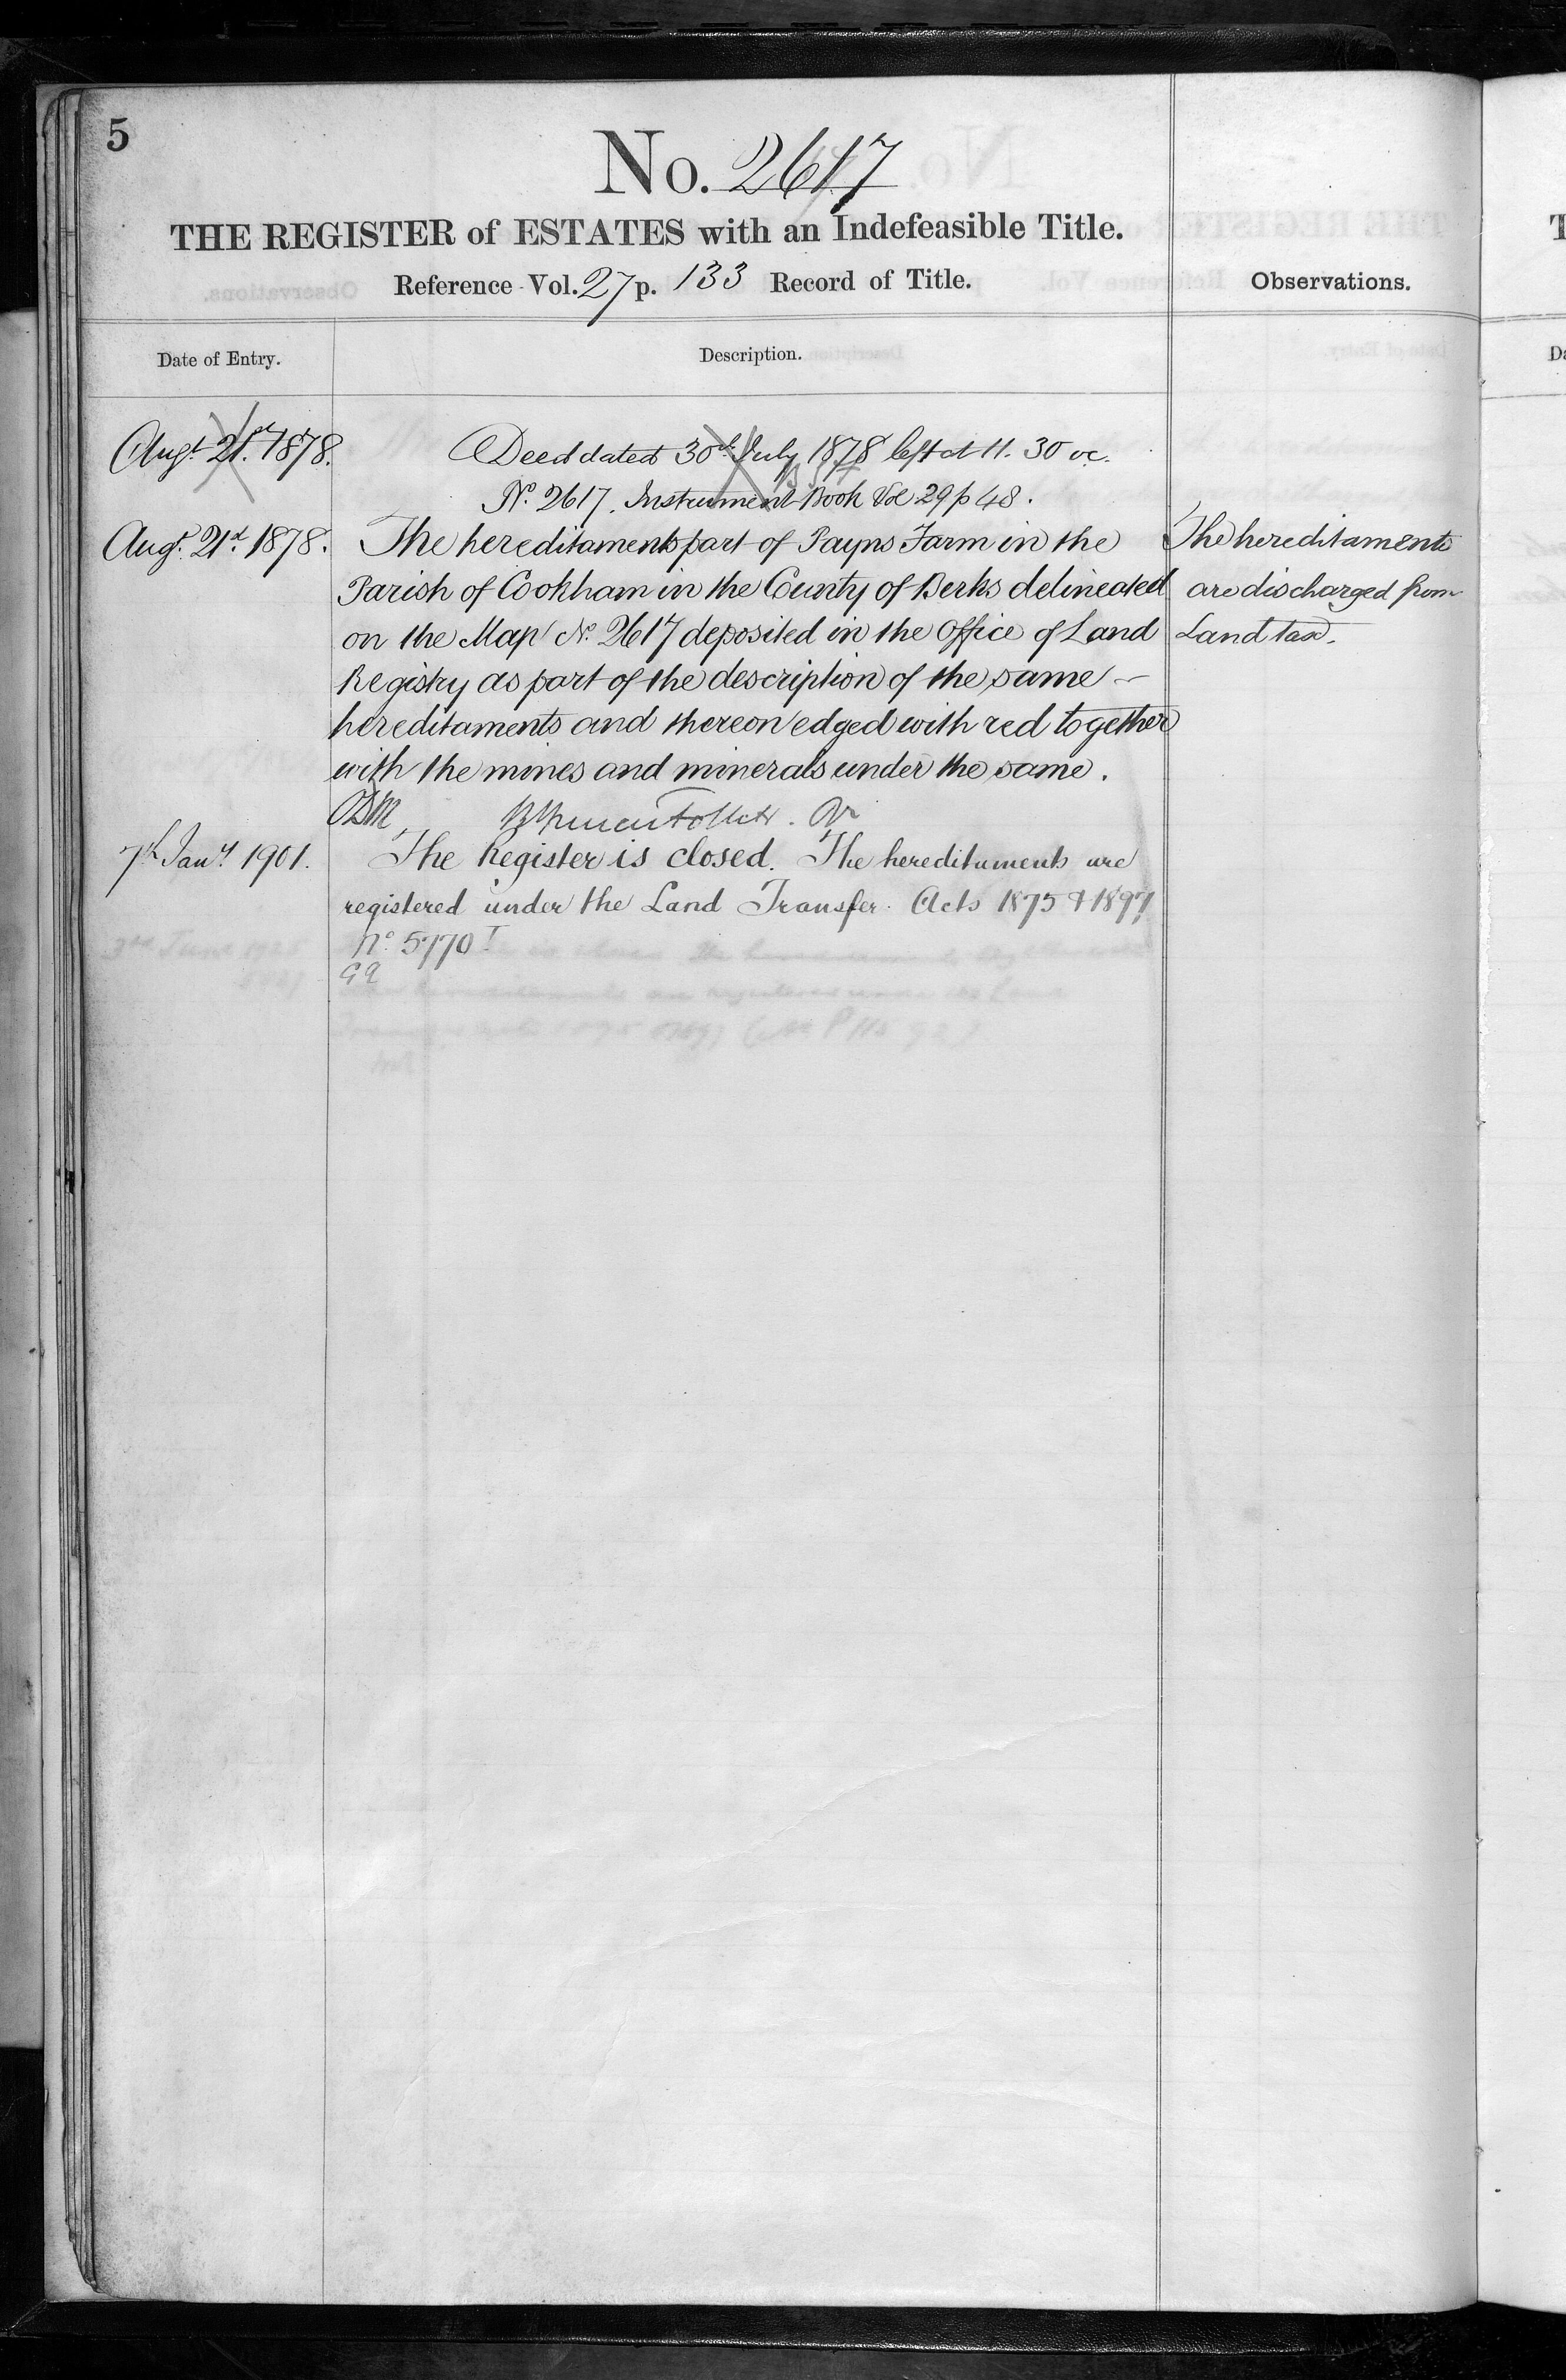 5
No. 2617
THE REGISTER of ESTATES with an Indefeasible Title.
Reference Vol. 27 p. 133 Record of Title.
Observations.
Date of Entry.
Description.
Augt. 21st. 1878.
Deed dated 30th July 1878 left at 11. 30
No. 2617. Instrument Book Vol 29 p 48.
Augt. 21st. 1878.
The hereditaments part of Payns Farm in the
Parish of Cookham in the County of Berks delineated
on the Map No. 2617 deposited in the Office of Land
Registry as part of the description of the same –
hereditaments and thereon edged with red together
with the mines and minerals under the same.
The hereditaments
are discharged from
Land tax.
7th Jany. 1901.
The Register is closed. The hereditaments are
registered under the Land Transfer Acts 1875 & 1897
No. 5770